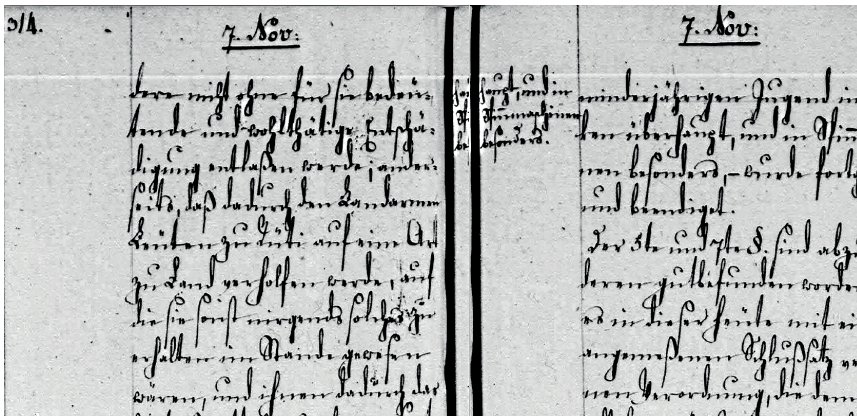 314.
7. Nov:
dere nicht ohne für sie bedeu-
tende und wohlthätige Entschä-
digung entlaßen werde; ander-
seits, daß dadurch den Landarmen
Leüten zu Rüti auf eine Art
zu Land verholfen werde, auf
die sie sonst nirgends solches zu
erhalten im Stande gewesen
wären, und ihnen dadurch das
7. Nov:
haupt, und in
Spinnmaschinen
besonders.
minderjährigen Jugend in
ken überhaupt, und in Spinn
nen besonders, – wurde fortg
und beendiget.
Der 5te und 7te §. sind abzu
deren gutbefunden worde
es in dieser heüte mit ei
angemeßenen Schlußsatz ve
nen Verordnung, die dem